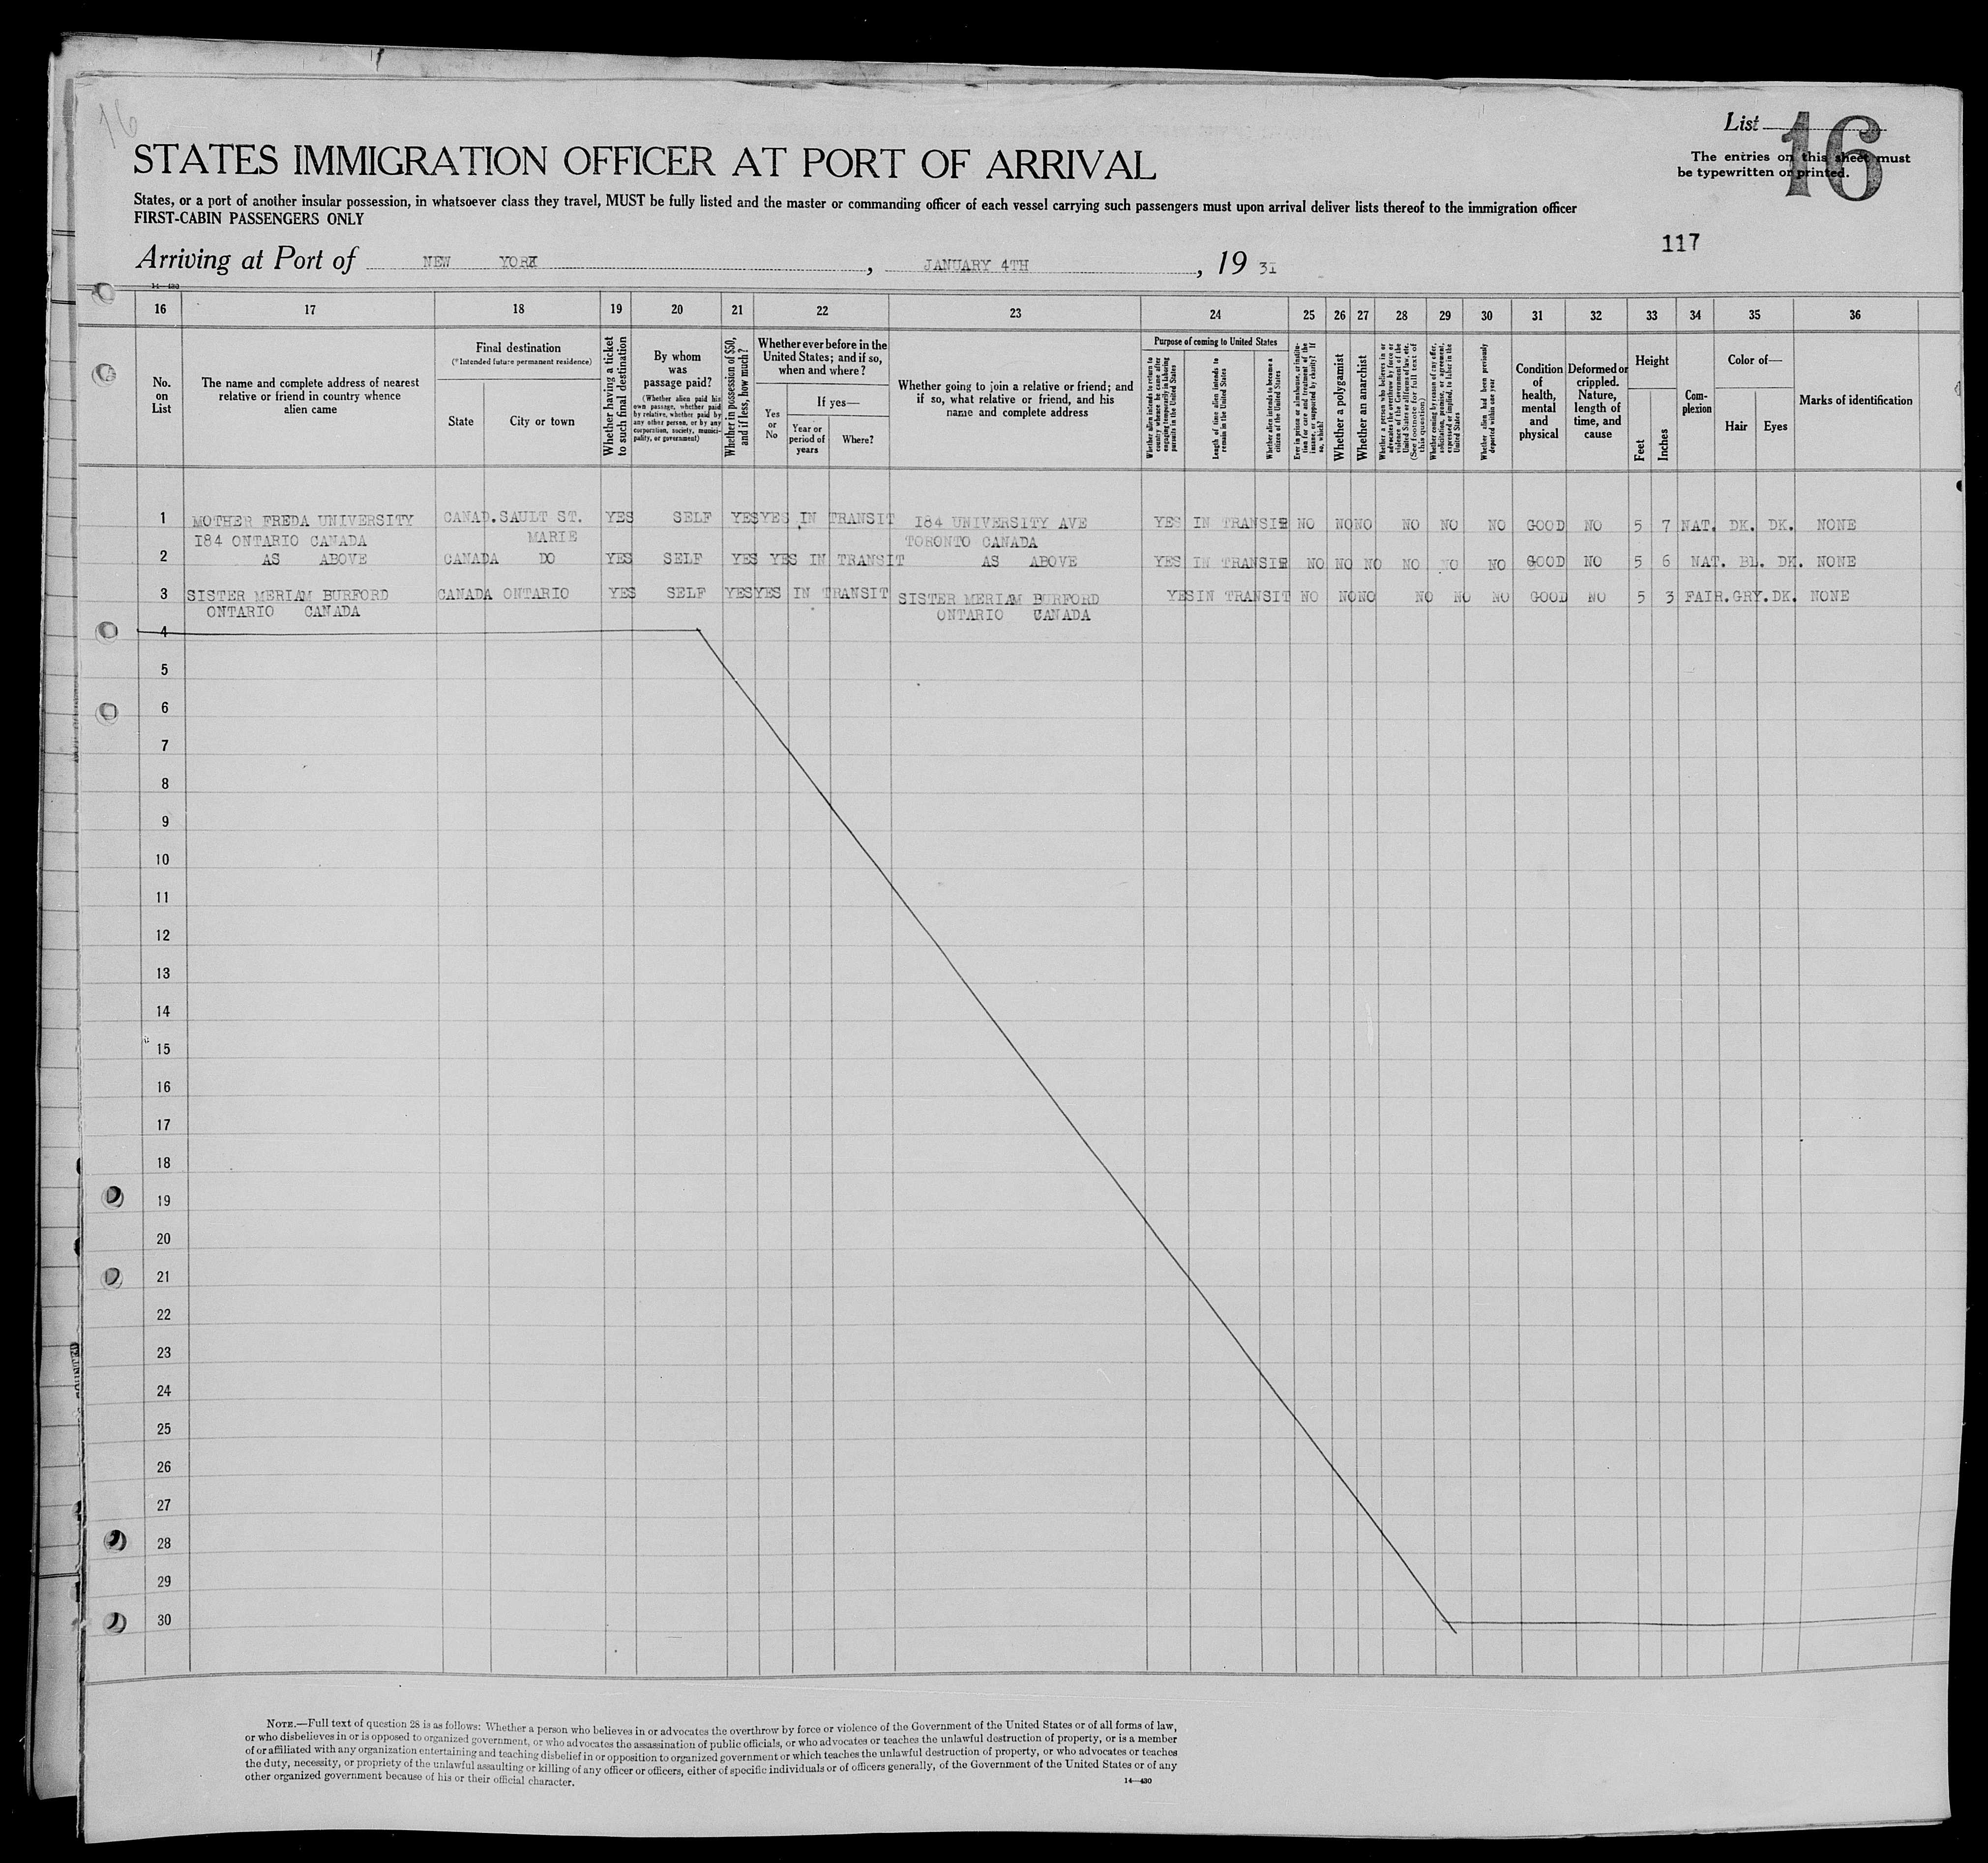 16
List 16
The entries on this sheet must
be typewritten or printed.
STATES IMMIGRATION OFFICER AT PORT OF ARRIVAL
States, or a port of another insular possession, in whatsoever class they travel, MUST be fully listed and the master or commanding officer of each vessel carrying such passengers must upon arrival deliver lists thereof to the immigration officer
FIRST-CABIN PASSENGERS ONLY
117
Arriving at Port of NEW YORK, JANUARY 4TH, 19 31
14—430
16 17 18 19 20 21 22 23 24 25 26 27 28 29 30 31 32 33 34 35 36
No. on List
The name and complete address of nearest relative or friend in country whence alien came
Final destination
(*Intended future permanent residence)
State
City or town
Whether having a ticket to such final destination
By whom was passage paid?
(Whether alien paid his own passage, whether paid by relative, whether paid by any other person, or by any corporation, society, municipality, or government)
Whether in possession of $50, and if less, how much?
Whether ever before in the United States; and if so, when and where?
Yes or No
If yes—
Year or period of years
Where?
Whether going to join a relative or friend; and if so, what relative or friend, and his name and complete address
Purpose of coming to United States
Whether alien intends to return to country whence he came after engaging temporarily in laboring pursuits in the United States
Length of time alien intends to remain in the United States
Whether alien intends to become a citizen of the United States
Ever in prison or almshouse, or institution for care and treatment of the insane, or supported by charity? If so, which?
Whether a polygamist
Whether an anarchist
Whether a person who believes in or advocates the overthrow by force or violence of the Government of the United States or all forms of law, etc. (See footnote for full text of this question)
Whether coming by reason of any offer, solicitation, promise, or agreement, expressed or implied, to labor in the United States
Whether alien had been previously deported within one year
Condition of health, mental and physical
Deformed or crippled. Nature, length of time, and cause
Height
Feet
Inches
Complexion
Color of—
Hair
Eyes
Marks of identification
1 MOTHER FREDA UNIVERSITY CANAD. SAULT ST. YES SELF YES YES IN TRANSIT 184 UNIVERSITY AVE YES IN TRANSIT NO NO NO NO NO NO GOOD NO 5 7 NAT. DK. DK. NONE
184 ONTARIO CANADA MARIE TORONTO CANADA
2 AS ABOVE CANADA DO YES SELF YES YES IN TRANSIT AS ABOVE YES IN TRANSIT NO NO NO NO NO NO GOOD NO 5 6 NAT. BL. DK. NONE
3 SISTER MERIAM BURFORD CANADA ONTARIO YES SELF YES YES IN TRANSIT SISTER MERIAM BURFORD YES IN TRANSIT NO NO NO NO NO NO GOOD NO 5 3 FAIR. GRY. DK. NONE
ONTARIO CANADA ONTARIO CANADA
4
5
6
7
8
9
10
11
12
13
14
15
16
17
18
19
20
21
22
23
24
25
26
27
28
29
30
NOTE.—Full text of question 28 is as follows: Whether a person who believes in or advocates the overthrow by force or violence of the Government of the United States or of all forms of law,
or who disbelieves in or is opposed to organized government, or who advocates the assassination of public officials, or who advocates or teaches the unlawful destruction of property, or is a member
of or affiliated with any organization entertaining and teaching disbelief in or opposition to organized government or which teaches the unlawful destruction of property, or who advocates or teaches
the duty, necessity, or propriety of the unlawful assaulting or killing of any officer or officers, either of specific individuals or of officers generally, of the Government of the United States or of any
other organized government because of his or their official character.
14—430